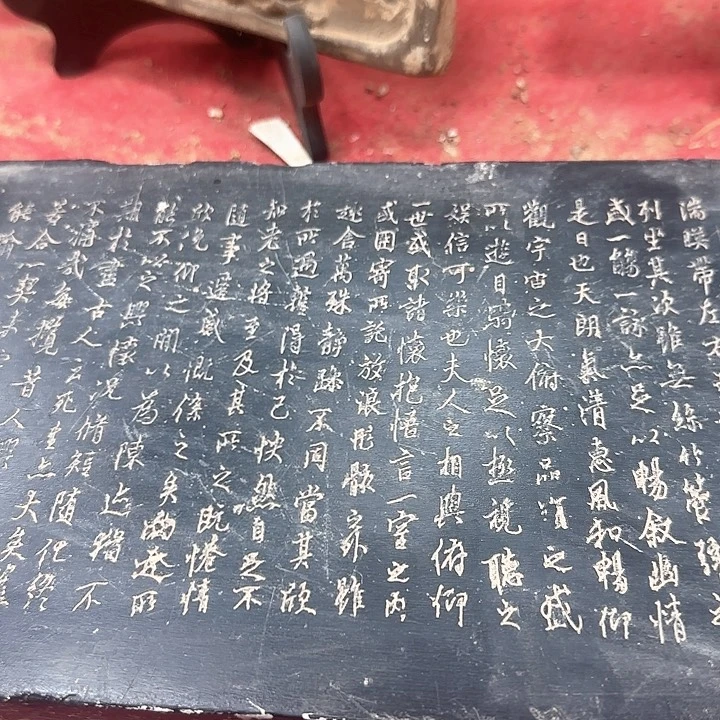 湍暎帶左右
列坐其次雖無絲竹管弦之
一觴一詠亦足以暢叙幽情
是日也天朗氣清惠風和暢仰
觀宇宙之大俯察品類之盛
所以遊目騁懷足以極視聽之
娛信可樂也夫人之相與俯仰
一世或取諸懷抱悟言一室之內
或因寄所託放浪形骸之外雖
趣舍萬殊靜躁不同當其欣
於所遇蹔得於己快然自足不
知老之將至及其所之既惓情
隨事遷感慨係之矣向之所
欣俛仰之間以為陳迹猶不
能不以之興懷況脩短隨化終
期於盡古人云死生亦大矣豈
不痛哉每攬昔人興
若合一契未
能喻